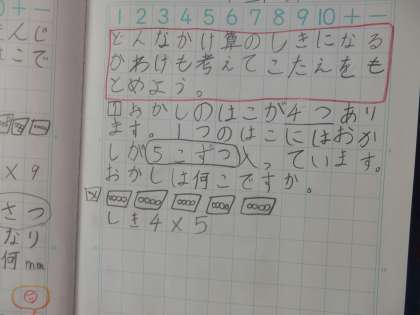 1 2 3 4 5 6 7 8 9 10 + −
どんなかけ算のしきになる
かわけも考えてこたえをも
とめよう。
1 おかしのはこが4つあり
ます。1つのはこにはおか
しが5こずつ入っています。
おかしは何こですか。
しき4×5
0 + −
こで
× 9
さつ
なり
何mm